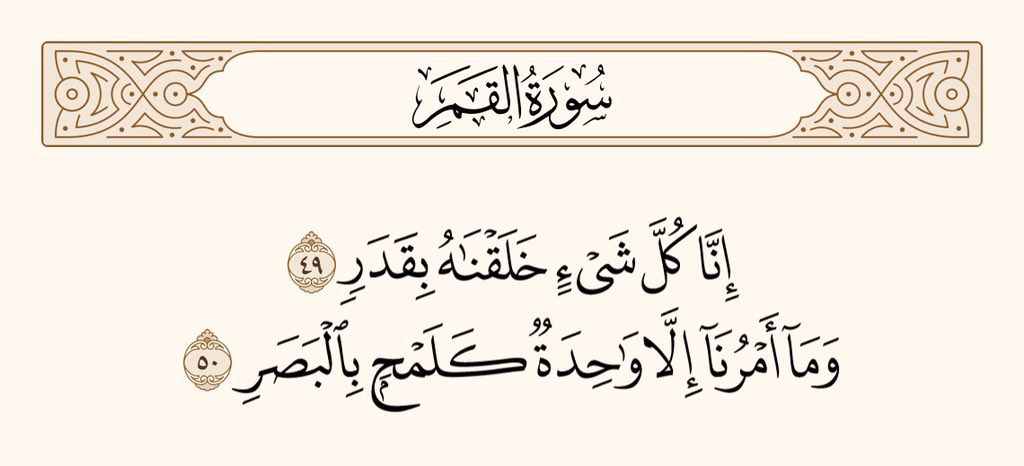 سُورَةُ القَمَرِ
إِنَّا كُلَّ شَىْءٍ خَلَقْنَـٰهُ بِقَدَرٍ ٤٩
وَمَآ أَمْرُنَآ إِلَّا وَٰحِدَةٌ كَلَمْحٍۭ بِٱلْبَصَرِ ٥٠